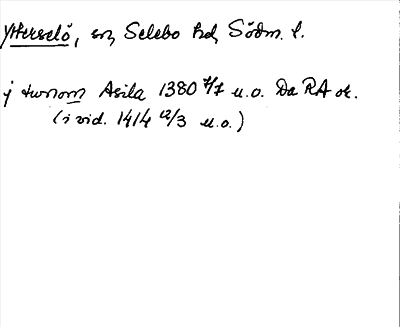 Ytterselö, sn, Selebo hd, Södm. l.
j twnom Asila 1380 7/7 u.o. Da RA or.
(i vid. 1414 12/3 u.o.)